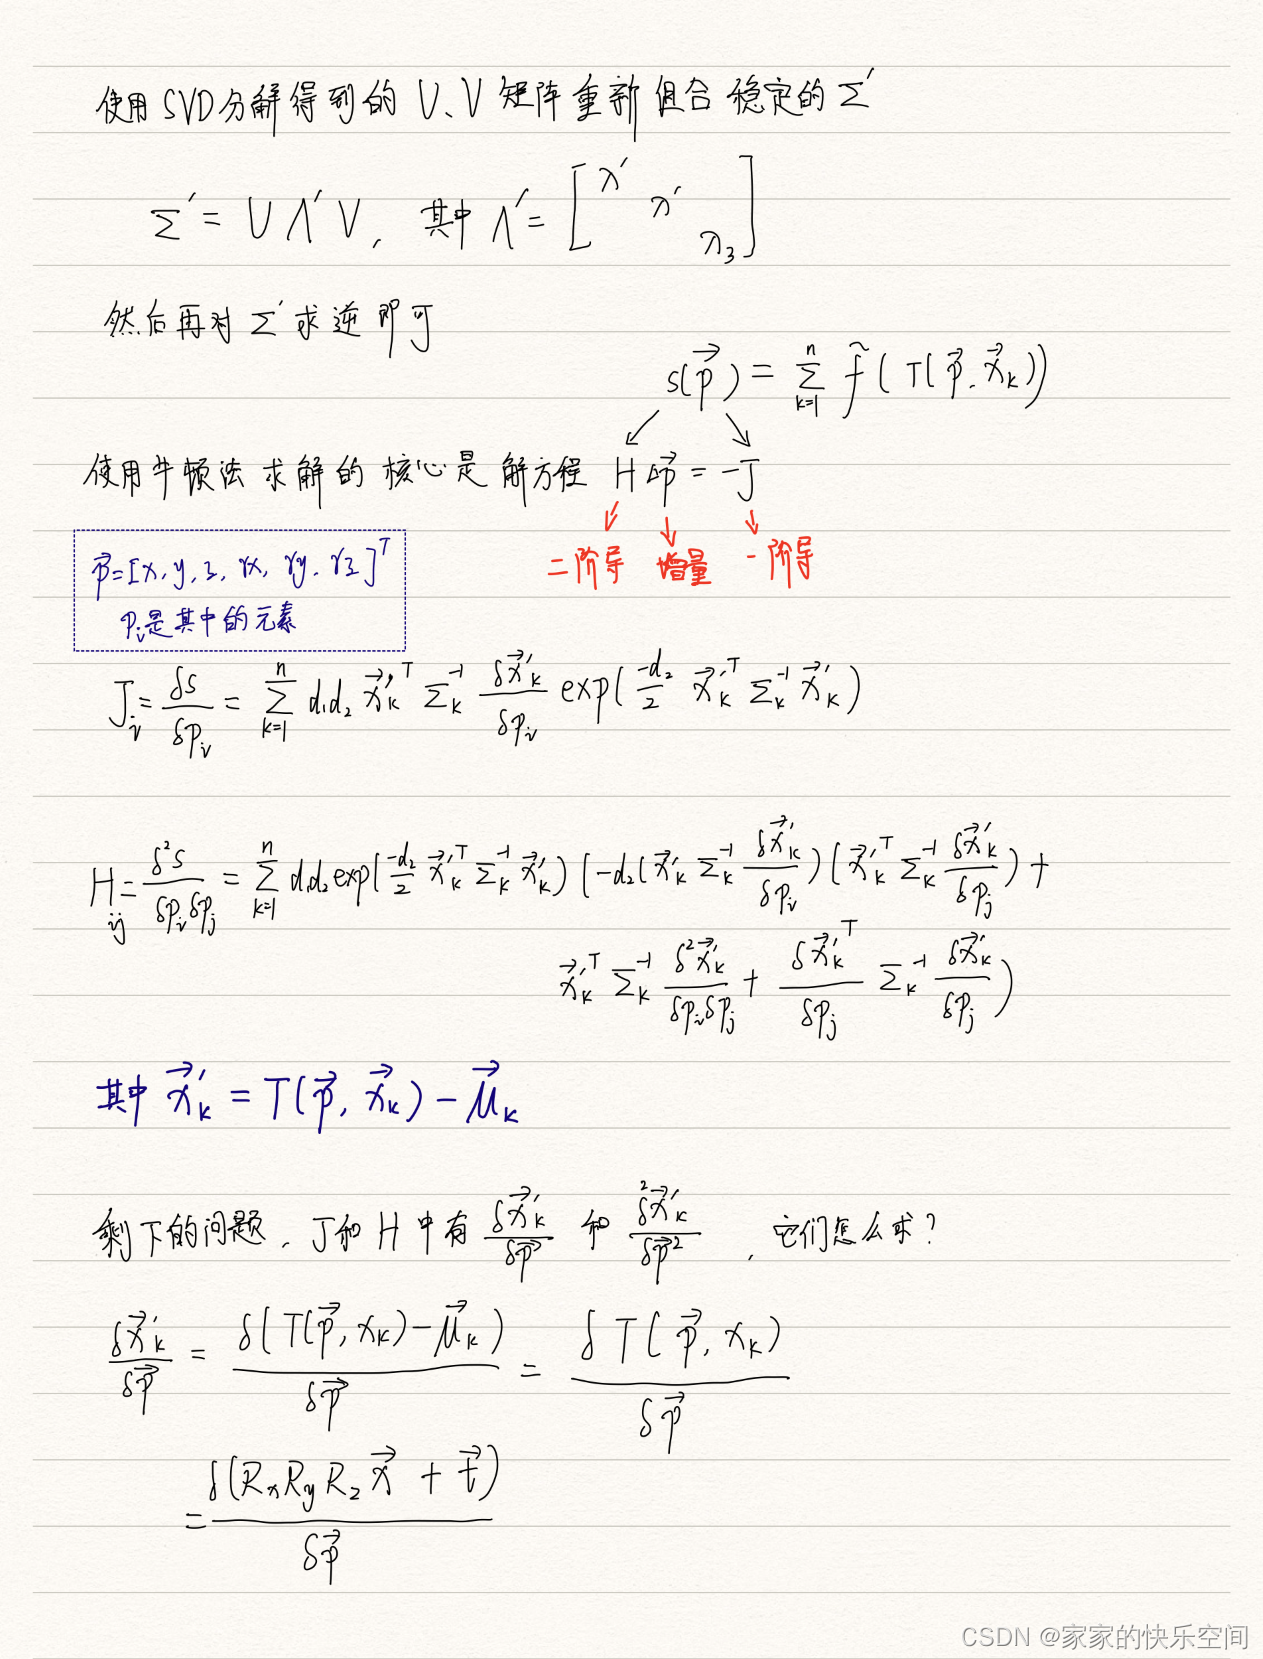 使用SVD分解得到的 U、V 矩阵重新组合稳定的 Σ'
Σ' = U Λ' V, 其中 Λ' = [λ' λ' λ₃]
然后再对 Σ' 求逆即可
s(p⃗) = Σ_{k=1}^{n} f̃(T(p⃗, x⃗_k))
使用牛顿法求解的核心是解方程 H Δp⃗ = -J
二阶导 增量 一阶导
p⃗=[x, y, z, γx, γy, γz]^T
p_i是其中的元素
J_i = δs/δp_i = Σ_{k=1}^{n} d₁d₂ x⃗'_k^T Σ_k^{-1} δx⃗'_k/δp_i exp(-d₂/2 x⃗'_k^T Σ_k^{-1} x⃗'_k)
H_ij = δ²s/δp_iδp_j = Σ_{k=1}^{n} d₁d₂ exp(-d₂/2 x⃗'_k^T Σ_k^{-1} x⃗'_k) (-d₂(x⃗'_k Σ_k^{-1} δx⃗'_k/δp_i)(x⃗'_k^T Σ_k^{-1} δx⃗'_k/δp_j) +
x⃗'_k^T Σ_k^{-1} δ²x⃗'_k/δp_iδp_j + δx⃗'_k^T/δp_j Σ_k^{-1} δx⃗'_k/δp_j)
其中 x⃗'_k = T(p⃗, x⃗_k) - μ⃗_k
剩下的问题, J和 H 中有 δx⃗'_k/δp⃗ 和 δ²x⃗'_k/δp⃗² , 它们怎么求?
δx⃗'_k/δp⃗ = δ(T(p⃗, x_k) - μ⃗_k)/δp⃗ = δT(p⃗, x_k)/δp⃗
= δ(R_x R_y R_z x⃗ + t⃗)/δp⃗
CSDN @家家的快乐空间